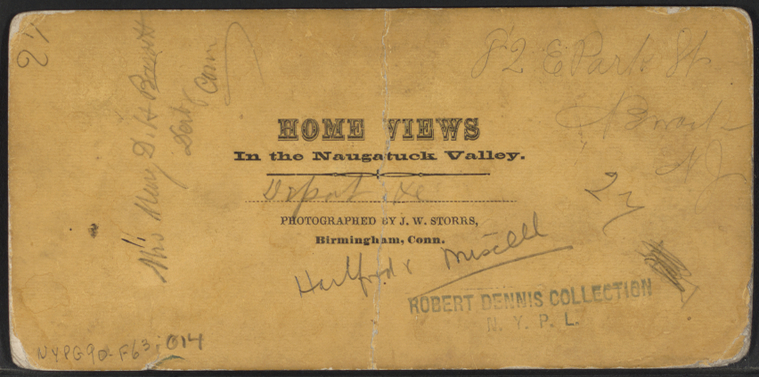 HOME VIEWS
In the Naugatuck Valley.
Depot &c
PHOTOGRAPHED BY J. W. STORRS,
Birmingham, Conn.
Hartford & Miscell
ROBERT DENNIS COLLECTION
N. Y. P. L.
82 E Park St
Newark
N J
27
27
Mrs Mary D. H
Conn
NYPG90-F63; 014